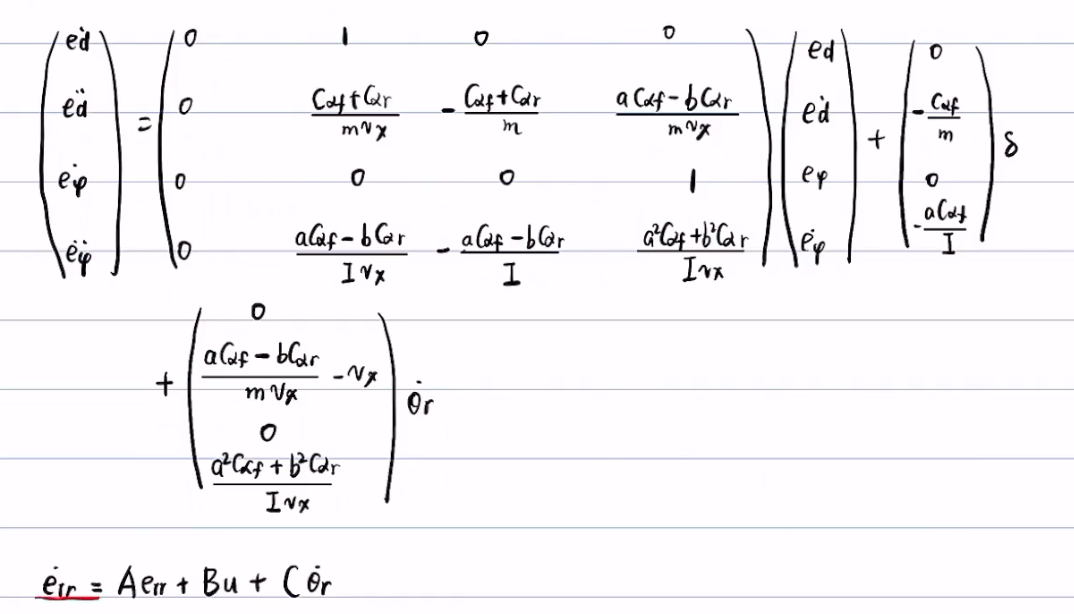 $$\begin{pmatrix} \dot{e_d} \\ \ddot{e_d} \\ \dot{e_\varphi} \\ \ddot{e_\varphi} \end{pmatrix} = \begin{pmatrix} 0 & 1 & 0 & 0 \\ 0 & \frac{C_{\alpha f}+C_{\alpha r}}{m v_x} & -\frac{C_{\alpha f}+C_{\alpha r}}{m} & \frac{aC_{\alpha f}-bC_{\alpha r}}{m v_x} \\ 0 & 0 & 0 & 1 \\ 0 & \frac{aC_{\alpha f}-bC_{\alpha r}}{I v_x} & -\frac{aC_{\alpha f}-bC_{\alpha r}}{I} & \frac{a^2C_{\alpha f}+b^2C_{\alpha r}}{I v_x} \end{pmatrix} \begin{pmatrix} e_d \\ \dot{e_d} \\ e_\varphi \\ \dot{e_\varphi} \end{pmatrix} + \begin{pmatrix} 0 \\ -\frac{C_{\alpha f}}{m} \\ 0 \\ -\frac{aC_{\alpha f}}{I} \end{pmatrix} \delta$$
$$+ \begin{pmatrix} 0 \\ \frac{aC_{\alpha f}-bC_{\alpha r}}{m v_x} - v_x \\ 0 \\ \frac{a^2C_{\alpha f}+b^2C_{\alpha r}}{I v_x} \end{pmatrix} \dot{\theta_r}$$
$$\dot{e_{rr}} = A e_{rr} + B u + C \dot{\theta_r}$$